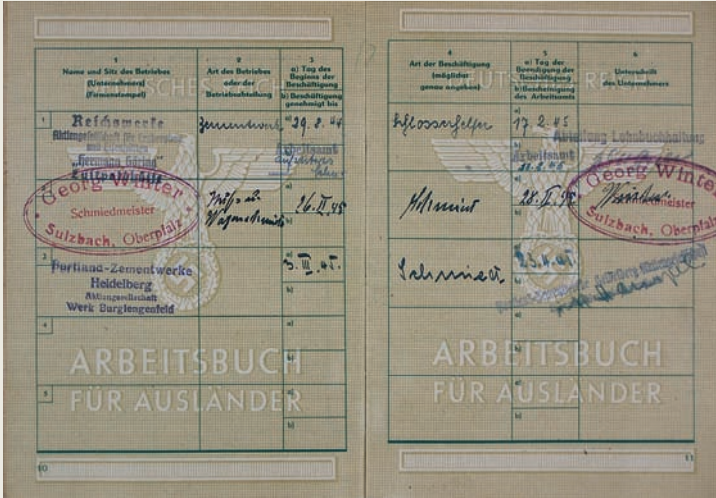 1
Name und Sitz des Betriebes
(Unternehmers)
(Firmenstempel)
2
Art des Betriebes
oder der
Betriebsabteilung
3
a) Tag des
Beginns der
Beschäftigung
b) Beschäftigung
genehmigt bis
1
Reichswerke
Aktiengesellschaft für
"Hermann Göring"
Zementwerk
a) 29. 8. 44
b)
Arbeitsamt
Georg Winter
Schmiedmeister
Sulzbach, Oberpfalz
a) 26. II. 45
b)
3
Portland-Zementwerke
Heidelberg
Aktiengesellschaft
Werk Burglengenfeld
a) 3. III. 45.
b)
4
a)
b)
5
a)
b)
ARBEITSBUCH
FÜR AUSLÄNDER
10
4
Art der Beschäftigung
(möglichst
genau angeben)
5
a) Tag der
Beendigung der
Beschäftigung
b) Bescheinigung
des Arbeitsamts
6
Unterschrift
des Unternehmers
DEUTSCHES REICH
Schlosserhelfer
17. 2. 45
Abteilung Lohnbuchhaltung
Arbeitsamt
Schmied
28. II. 45
b)
Georg Winter
Schmiedmeister
Sulzbach, Oberpfalz
Schmied
23.4.45
b)
a)
b)
a)
b)
ARBEITSBUCH
FÜR AUSLÄNDER
11